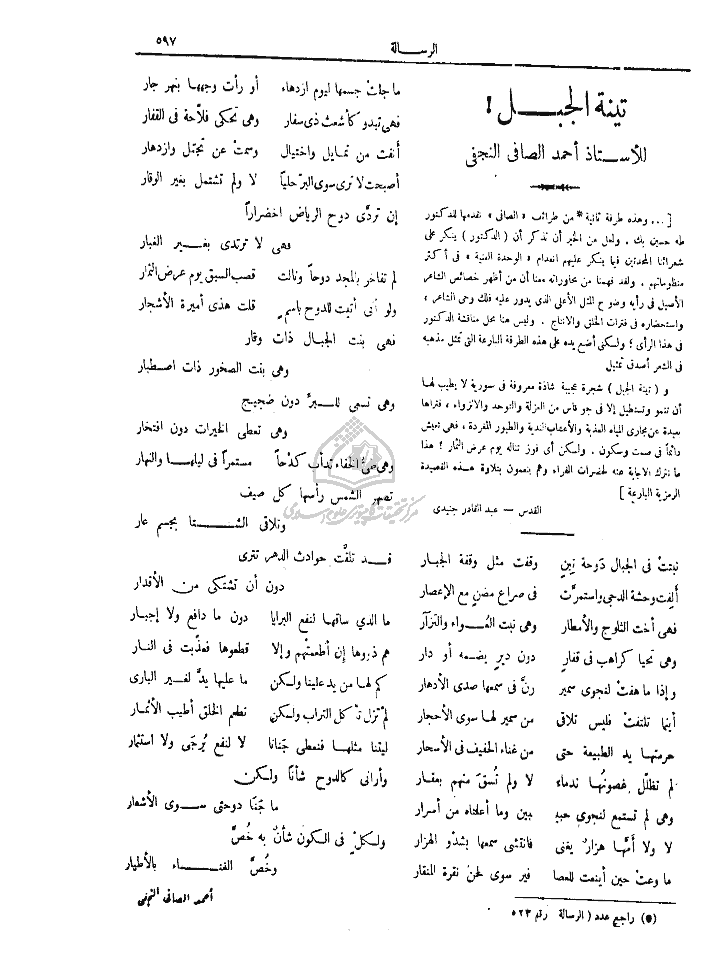 الرسالة
٥٩٧
تينة الجبل !
للأستاذ أحمد الصافى النجفى
[ ... وهذه طرفة ثانية * من طرائف « الصافى » نقدمها للدكتور
طه حسين بك . ولعل من الخير أن نذكر أن ( الدكتور ) ينكر على
شعرائنا المحدثين فيما ينكر عليهم انعدام « الوحدة الفنية » فى أكثر
منظوماتهم . ولقد فهمنا من محاوراته معنا أن من أظهر خصائص الشاعر
الأصيل فى رأيه وضوح المثل الأعلى الذى يدور عليه فلك وحى الشاعر ،
واستحضاره فى فترات الخلق والانتاج . وليس هنا محل مناقشة الدكتور
فى هذا الرأى ؛ ولكنى أضع يده على هذه الطرفة البارعة التى تمثل مذهبه
فى الشعر أصدق تمثيل
و ( تينة الجبل ) شجرة عجيبة شاذة معروفة فى سورية لا يطيب لها
أن تنمو وتستطيل إلا فى جو قاس من العزلة والتوحد والانزواء ، فتراها
بعيدة عن مجارى المياه العذبة والأعشاب الندية والطيور المغردة ، فهى تعيش
دائماً فى صمت وسكون . ولكن أى فوز تناله يوم عرض الثمار ؟ هذا
ما نترك الاجابة عنه لحضرات القراء وهم ينعمون بتلاوة هذه القصيدة
الرمزية البارعة ]
القدس — عبد القادر جنيدى
نبتتْ فى الجبال دَوحة تِينٍ وقفت مثل وقفة الجبار
ألِفت وحشة الدجى واستمرَّت فى صراع مضنٍ مع الإعصار
فهى أخت الثلوج والأمطار وهى نبت العُـواء والتزآر
وهى تحيا كراهب فى قفارٍ دون ديرٍ يضمه أو دار
وإذا ما هفتْ لنجوى سميرٍ رنَّ فى سمعها صدى الأدهار
أينما تلتفت فليس تلاقى من سمير لها سوى الأحجار
حرمتها يد الطبيعة حتى من غناء الحفيف فى الأسحار
لم تظلّل غصونُها ندماء لا ولم تُسقَ منهمُ بعقار
وهى لم تستمع لنجوى حبيب بين وما أعلناه من أسرار
لا ولا أمَّها هزارٌ يغنى فانتشى سمعها بشدْو الهزار
ما وعتْ حين أينعت للعصا فير سوى لحن نقرة المنقار
(*) راجع عدد ( الرسالة رقم ٥٢٣
ما جلتْ جسمها ليوم ازدهاء أو رأت وجهها بنهر جار
فهى تبدو كأشعث ذى سفار وهى تحكى فلّاحة فى القفار
أنفت من تمايل واختيال وسمتْ عن تجمّل وازدهار
أصبحت لا ترى سوى البرّ حلياً لا ولم تشتمل بغير الوقار
إن تردّى دوح الرياض اخضراراً
فهى لا ترتدى بغـير الغبار
لم تفاخر بالمجد دوحاً ونالت قصب السبق يوم عرض الثمار
ولو أنى أتيت للدوح باسمٍ قلت هذى أميرة الأشجار
فهى بنت الجبال ذات وقار
وهى بنت الصخور ذات اصطبار
وهى تسعى للـبرّ دون ضجيج
وهى تعطى الخيرات دون افتخار
وهى طىَّ الخفاء تدأب كدْحاً مستمراً فى ليلها والنهار
تصهر الشمس رأسها كل صيف
وتلاقى الشتا بجسم عار
قد تلقَّت حوادث الدهر تترى
دون أن تشتكى من الأقدار
ما الذي ساقها لنفع البرايا دون ما دافع ولا إجبار
هم ذروها إن أطعمتْهم وإلا قطعوها فعذّبت فى النار
كم لها من يد علينا ولكن ما عليها يدٌ لغير البارى
لمْ تزل تأكل التراب ولكن تطعم الخلق أطيب الأثمار
ليتنا مثلها فنعطى جَنانا لا لنفع يُرجَى ولا استثمار
وأرانى كالدوح شأناً ولكن
ما جَنَا دوحتى سوى الأشعار
ولكلٍ فى الكون شأنٌ به خُصَّ
وخُصَّ الغناء بالأطيار
أحمد الصافى النجفى
مركز تحقيقات كامپيوترى علوم اسلامى